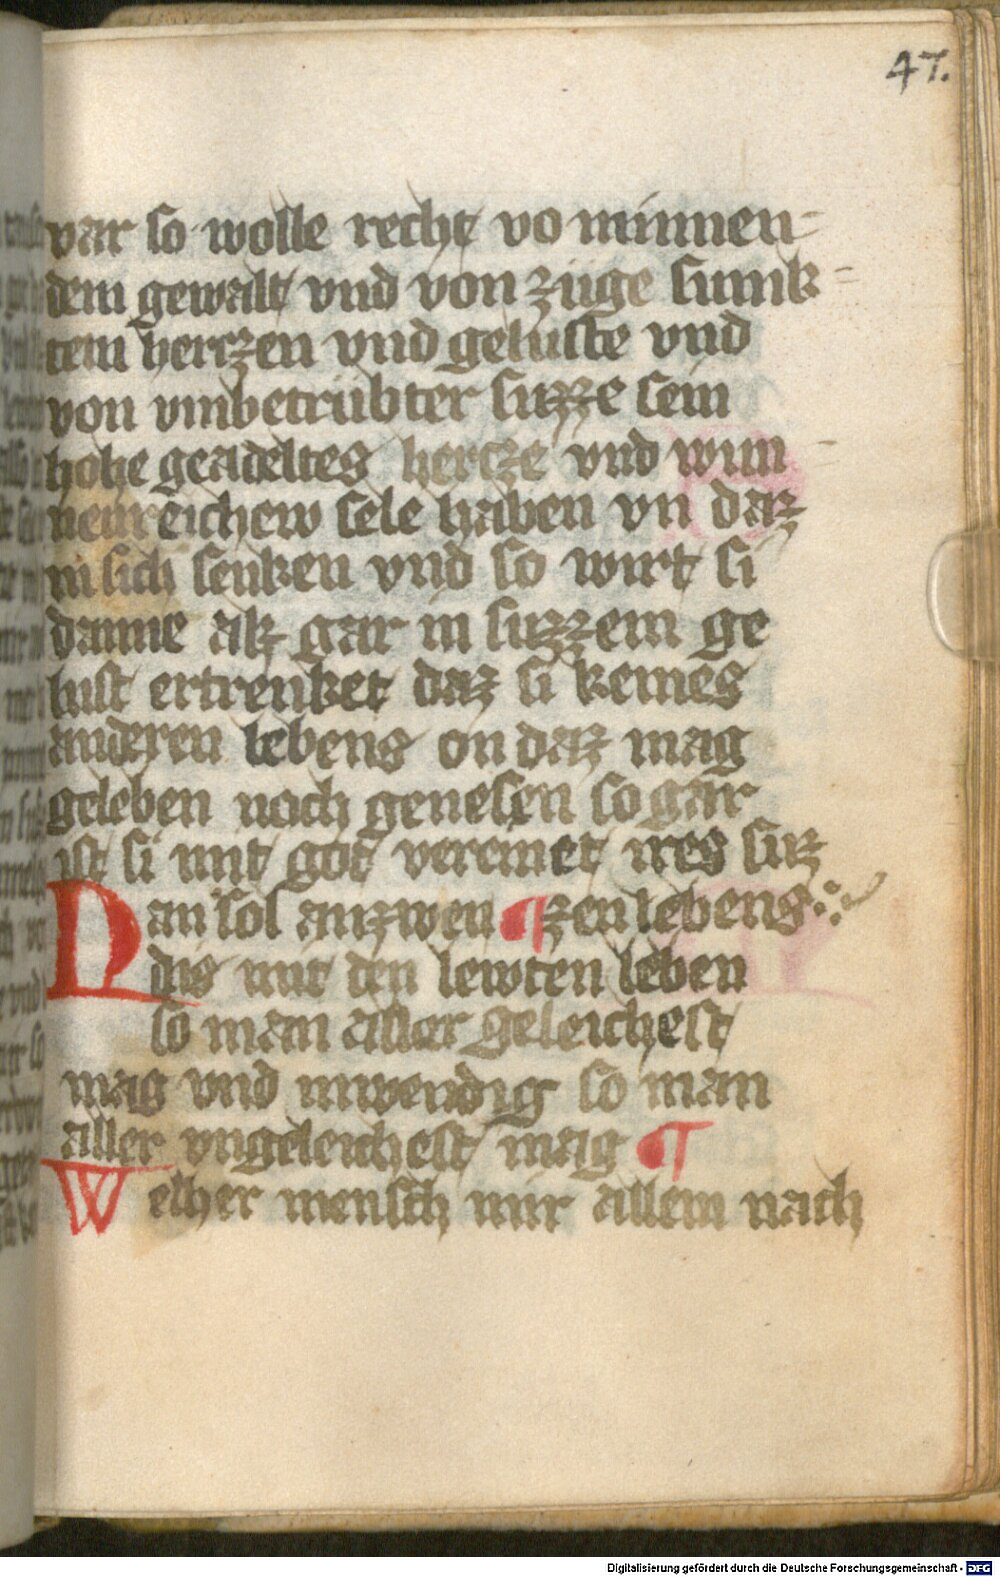 47.
var so wolle recht vo minnen-
dem gewalt vnd von züge sumk-
tem herczen vnd geluste vnd
von vmbetrübter suzze sein
hohe geadeltes hercze vnd wun
nenreichew sele haben vn daz
in sich senken vnd so wirt si
danne alz gar in suzzem ge
lust ertrenket daz si keines
anderen lebens on daz mag
geleben noch genesen so gar
ist si mit got vereinet ires suz
Dan sol auzwen ¶ zen lebens
dig mit den lewten leben
so man aller geleichest
mag vnd inwendig so man
aller vngeleichest mag ¶
Welher mensch mir allein nach
Digitalisierung gefördert durch die Deutsche Forschungsgemeinschaft - DFG